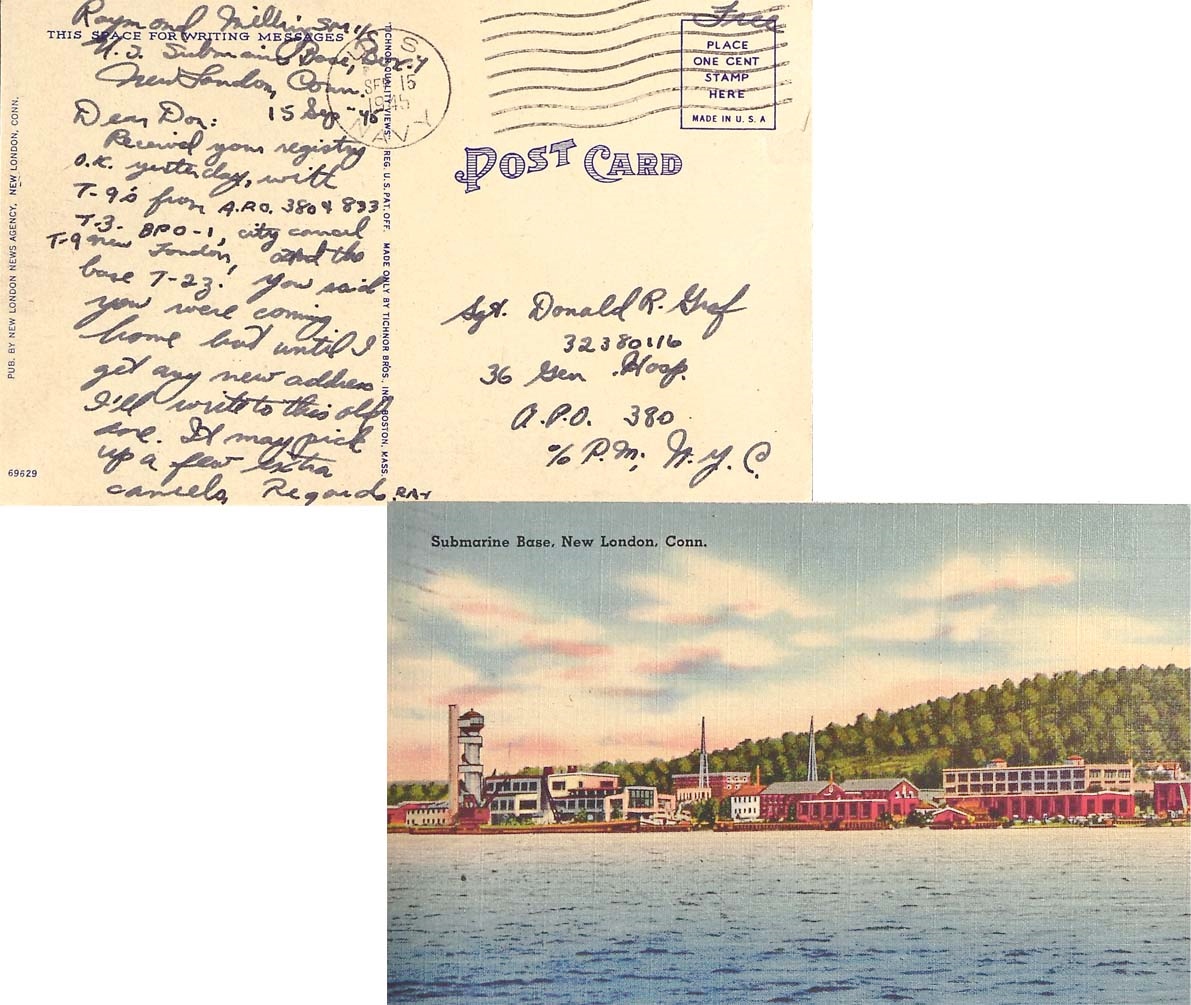 Raymond Millin SM 1/c
THIS SPACE FOR WRITING MESSAGES
U.S. Submarine Base, Box 4
New London, Conn.
15 Sep "45
Dear Don:
Received your registry
O.K. yesterday, with
T-9's from A.P.O. 380 & 833
T-3. BPO-1, city cancel
T-9 new London, and the
base T-23! You said
you were coming
home but until I
get any new address
I'll write to this old
one. It may pick
up a few extra
cancels, Regards, RAY
PUB. BY NEW LONDON NEWS AGENCY, NEW LONDON, CONN.
69629
TICHNOR QUALITY VIEWS, REG. U.S. PAT. OFF. MADE ONLY BY TICHNOR BROS., INC., BOSTON, MASS.
U. S.
SEP 15
1945
NAVY
Free
PLACE
ONE CENT
STAMP
HERE
MADE IN U. S. A
POST CARD
Sgt. Donald R. Graf
32380116
36 Gen. Hosp.
A.P.O. 380
℅ P.M., N.Y.C.
Submarine Base, New London, Conn.